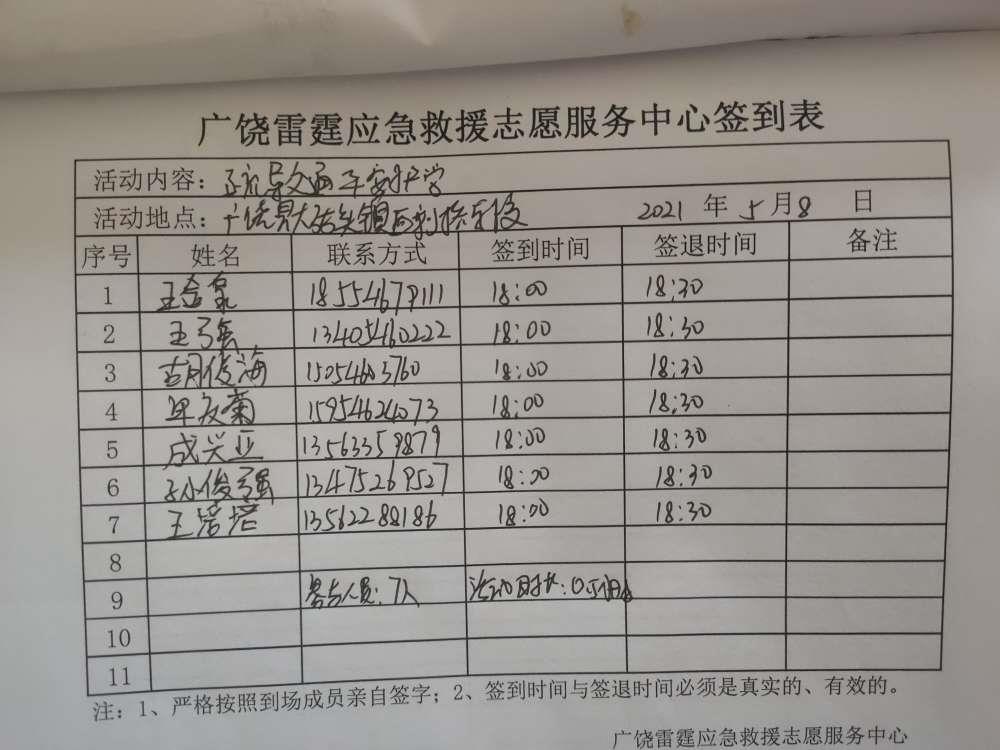 广饶雷霆应急救援志愿服务中心签到表
活动内容：疏导交通 平安护学
活动地点：广饶县大码头镇西刘桥学校 2021 年 5 月 8 日
序号 姓名 联系方式 签到时间 签退时间 备注
1 王 18554679111 18:00 18:30
2 王 13405460222 18:00 18:30
3 胡俊海 15054603760 18:00 18:30
4 友菊 15954624073 18:00 18:30
5 成兴亚 13563359879 18:00 18:30
6 孙俊强 13475269527 18:00 18:30
7 王培培 13562288186 18:00 18:30
8
9 参与人员：7人 活动时长：0.5小时
10
11
注：1、严格按照到场成员亲自签字；2、签到时间与签退时间必须是真实的、有效的。
广饶雷霆应急救援志愿服务中心